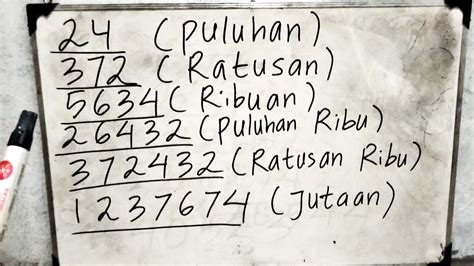 24 (puluhan)
372 (Ratusan)
5634 (Ribuan)
26432 (puluhan Ribu)
372432 (Ratusan Ribu)
1237674 (Jutaan)